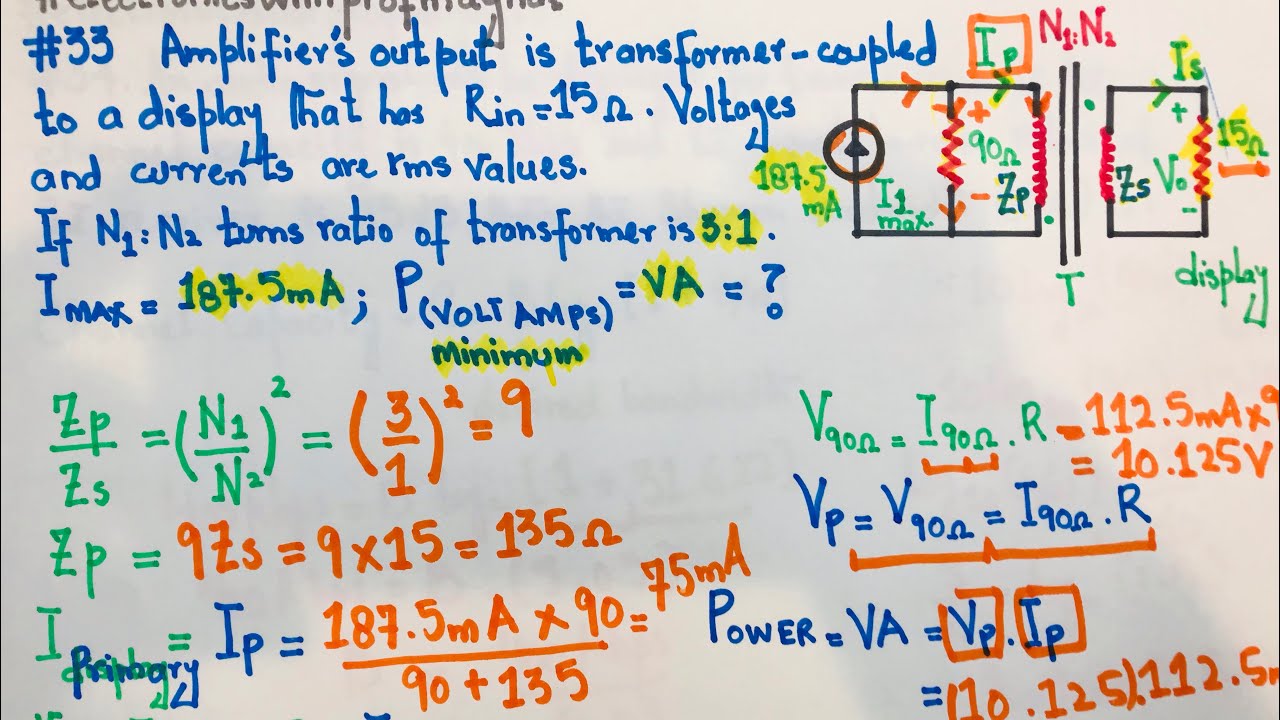 #33 Amplifier's output is transformer-coupled
to a display that has Rin=15Ω. Voltages
and currents are rms values.
If N1:N2 turns ratio of transformer is 3:1.
IMAX = 187.5mA; P(VOLT AMPS) = VA = ?
minimum
Ip N1:N2 Is
187.5 mA
I1 max.
+ 90Ω -
Zp
T
Zs
+ Vo -
15Ω
display
Zp/Zs = (N1/N2)² = (3/1)² = 9
Zp = 9Zs = 9×15 = 135Ω
I Primary = Ip = 187.5mA × 90 / 90+135 = 75mA
V90Ω = I90Ω . R = 112.5mA×9
= 10.125V
Vp = V90Ω = I90Ω . R
POWER = VA = Vp . Ip
= (10.125).112.5m